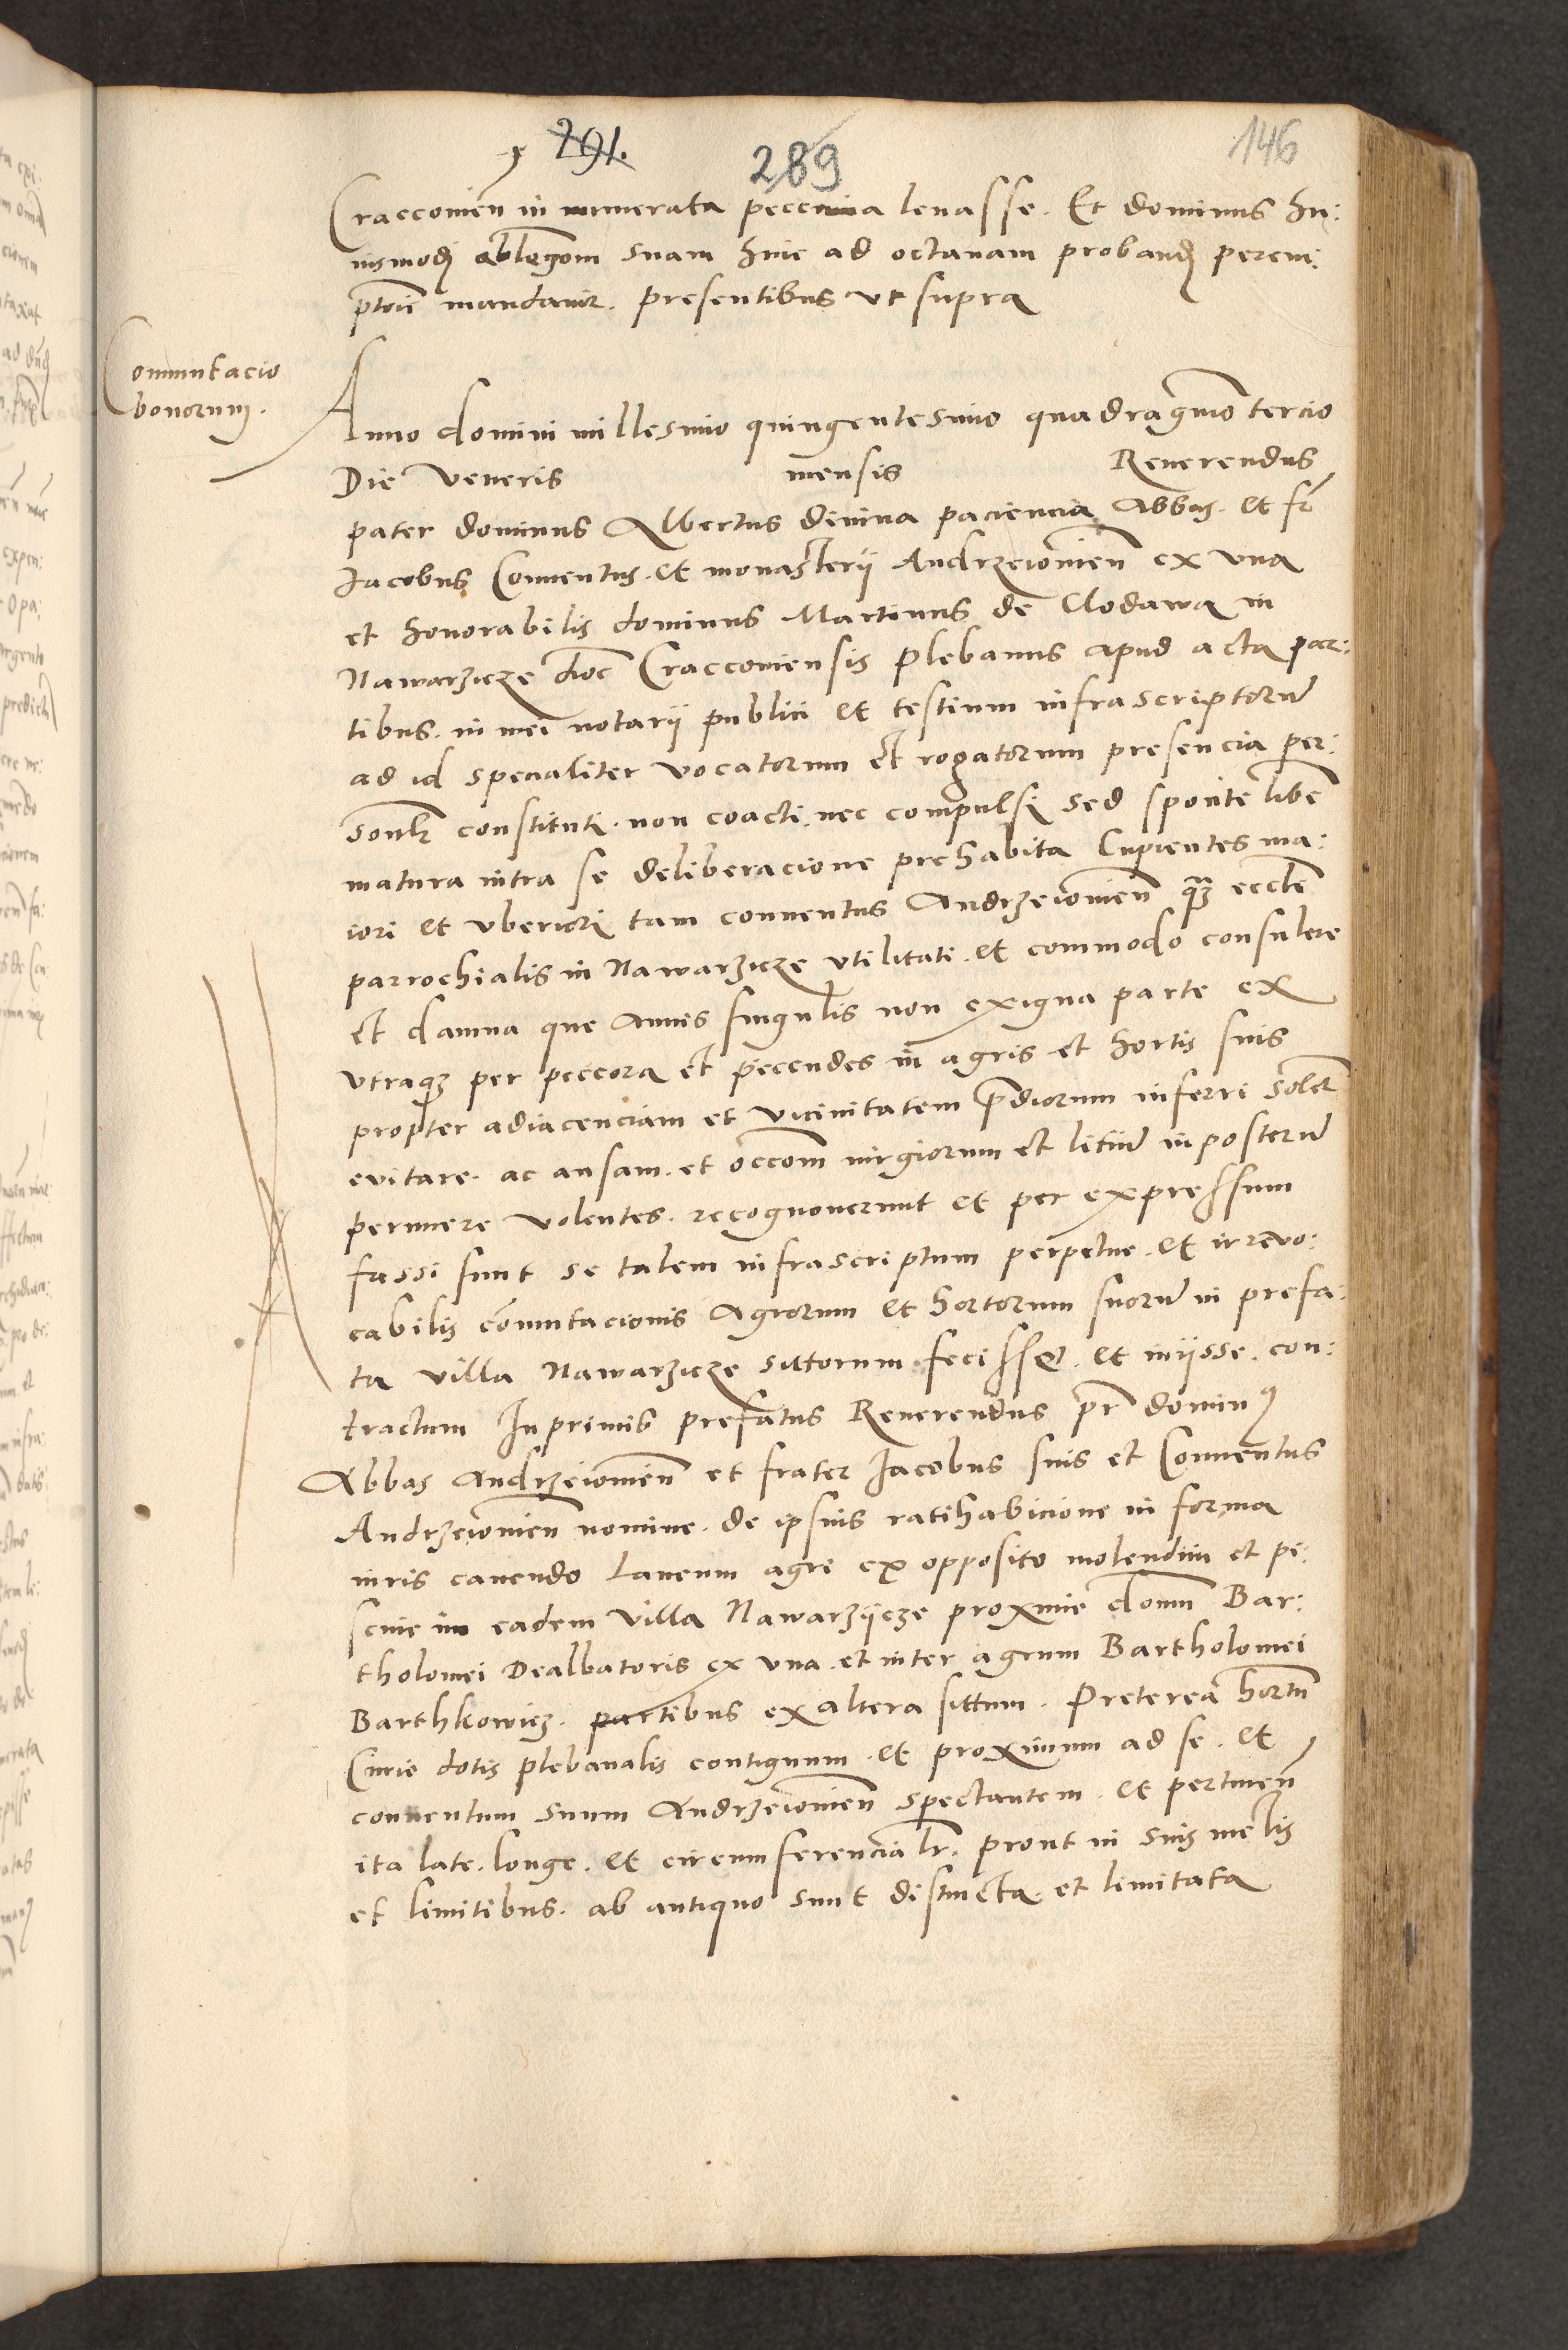 291.
289
146
Cracconien in numerata peccunia leuasse. Et dominus hu:
iusmodi ablegom suam hinc ad octauam probandi perem:
ptorie mandauit. presentibus vt supra
Commutacio
bonorum.
Anno domini millesimo quingentesimo quadragmo tercio
Die Veneris mensis Reuerendus
pater dominus Albertus diuina paciencia Abbas. et fr
Jacobus Conuentus. et monasterij Andrzeiouien ex vna
et honorabilis dominus Martinus de Clodawa in
Nawarzicze dioc Cracconiensis plebanus apud acta par:
tibus. in mei notarij publici et testium infrascriptorum
ad id specialiter vocatorum et rogatorum presencia per:
sonlr constituti. non coacti. nec compulsi sed sponte libe
matura intra se deliberacione prehabita Cupientes ma:
iori et vberiori tam conuentus Andrzeiouien quam eccle
parrochialis in Nawarzicze vtilitati. et commodo consulere
et damna que annis singulis non exigua parte ex
vtraque per peccora et peccudes in agris et hortis suis
propter adiacenciam et vicinitatem prediorum inferri solet
euitare. ac ansam. et occom iurgiorum et litium inposterum
perimere volentes. recognouerunt et per expressum
fassi sunt se talem infrascriptum perpetue. et irreuo:
cabilis comutacionis Agrorum et hortorum suorum in prefa:
ta villa Nawarzicze sittorum fecisse. et inijsse. con:
tractum Inprimis prefatus Reuerendus pr dominus
Abbas Andrzeiouien et frater Jacobus suis et Conuentus
Andrzeiouien nomine. de ipsius ratihabicione in forma
iuris cauendo Laneum agri ex opposito molendini et pi:
scine in eadem villa Nawarzijcze proxime domum Bar:
tholomei Dealbatoris ex vna. et inter agrum Bartholomei
Barthkowicz. partibus ex altera sittum. Preterea hortum
Curie dotis plebanalis contiguum. et proximum ad se. et
conuentum suum Andrzeiouien spectantem. et pertinen
ita late. longe. et circumferencialr. prout in suis metis
et limitibus. ab antiquo sunt distincta et limitata